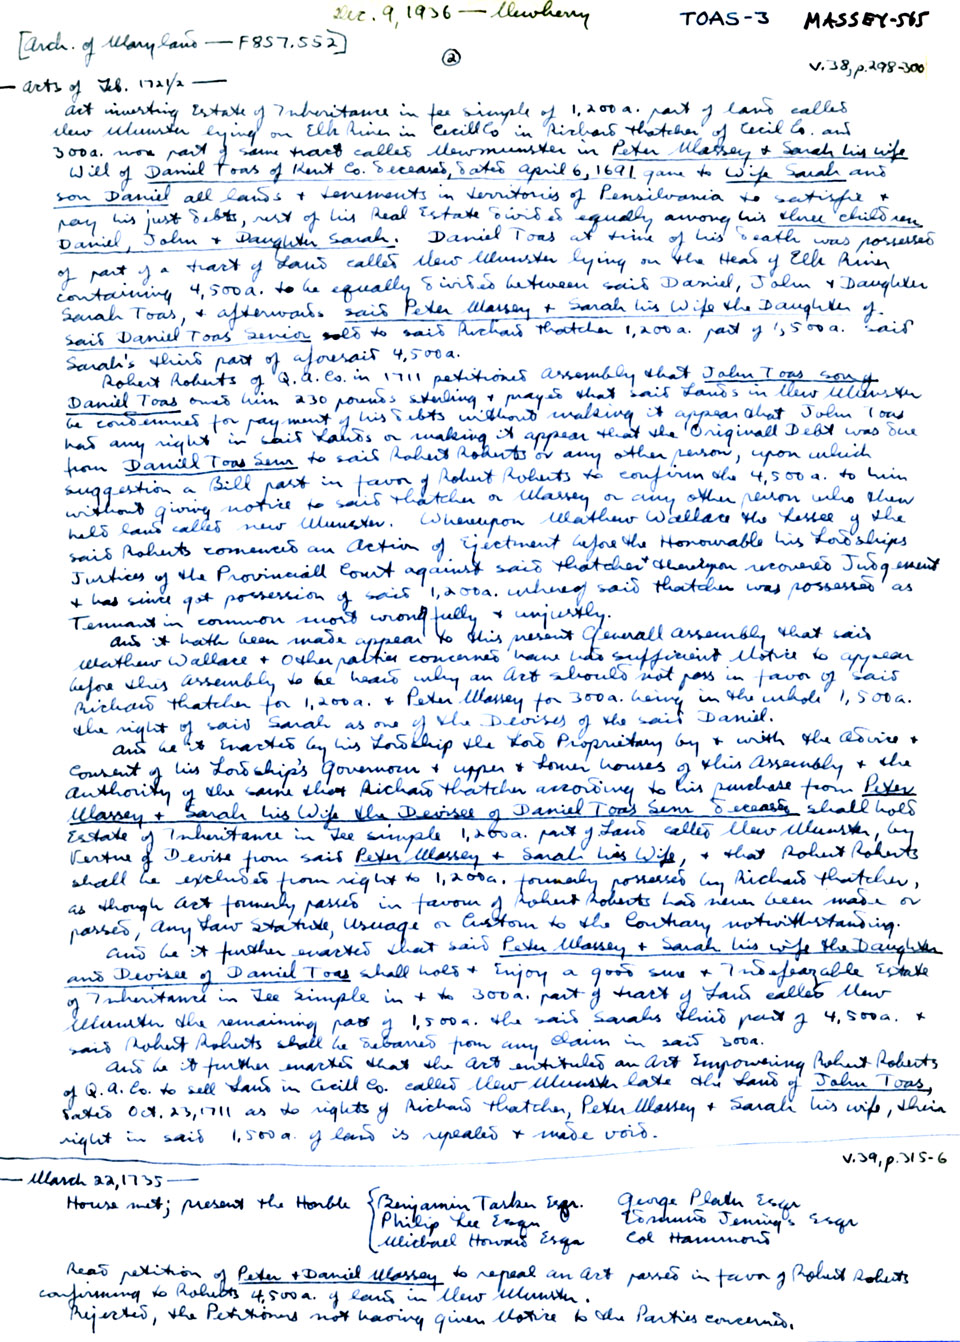 Dec. 9, 1936 — Newberry
TOAS-3 MASSEY-565
[Arch. of Maryland — F857.552]
②
v.38, p.298-300
— Acts of Feb. 1721/2 —
Act investing Estate of Inheritance in fee simple of 1,200a. part of land called
New Munster lying on Elk River in Cecill Co in Richard Thatcher of Cecil Co. and
300a. more part of same tract called Newmunster in Peter Massey & Sarah his wife
Will of Daniel Toas of Kent Co. deceased, dated April 6, 1691 gave to Wife Sarah and
son Daniel all lands & tenements in territories of Pensilvania to satisfie &
pay his just debts, rest of his Real Estate divided equally among his three children
Daniel, John & Daughter Sarah. Daniel Toas at time of his death was possessed
of part of a tract of Land called New Munster lying on the Head of Elk River
containing 4,500a. to be equally divided between said Daniel, John & Daughter
Sarah Toas, & afterwards said Peter Massey & Sarah his Wife the Daughter of
said Daniel Toas Senior sold to said Richard Thatcher 1,200a. part of 1,500a. said
Sarah's third part of aforesaid 4,500a.
Robert Roberts of Q.A.Co. in 1711 petitioned Assembly that John Toas son of
Daniel Toas owed him 230 pounds sterling & prayed that said Lands in New Munster
be condemned for payment of his debts without making it appear that John Toas
had any right in said Lands or making it appear that the Originall Debt was due
from Daniell Toas Senr to said Robert Roberts or any other person, upon which
suggestion a Bill past in favor of Robert Roberts to confirm the 4,500a. to him
without giving notice to said Thatcher or Massey or any other person who then
held land called new Munster. Whereupon Mathew Wallace the Lessee of the
said Roberts comenced an Action of Ejectment before the Honourable his Lordships
Justices of the Provinciall Court against said Thatcher & thereupon recovered Judgement
& has since got possession of said 1,200a. whereof said Thatcher was possessed as
Tennant in common most wrongfully & unjustly.
And it hath been made appear to this present Generall Assembly that said
Mathew Wallace & Other parties concerned have had sufficient Notice to appear
before this Assembly to be heard why an Act should not pass in favor of said
Richard Thatcher for 1,200a. & Peter Massey for 300a. being in the whole 1,500a.
the right of said Sarah as one of the Devises of the said Daniel.
And be it Enacted by his Lordship the Lord Proprietary by & with the Advice &
Consent of his Lordship's Governour & upper & Lower houses of this Assembly & the
Authority of the same that Richard Thatcher according to his purchase from Peter
Massey & Sarah his Wife the Devisee of Daniel Toas Senr deceased shall hold
Estate of Inheritance in Fee simple 1,200a. part of Land called New Munster, by
Vertue of Devise from said Peter Massey & Sarah his Wife, & that Robert Roberts
shall be excluded from right to 1,200a. formerly possessed by Richard Thatcher,
as though Act formerly passed in favour of Robert Roberts had never been made or
passed, any Law Statute, Usuage or Custom to the Contrary notwithstanding.
And be it further enacted that said Peter Massey & Sarah his wife the Daughter
and Devisee of Daniel Toas shall hold & Enjoy a good sure & Indefeazable Estate
of Inheritance in Fee Simple in & to 300a. part of tract of Land called New
Munster the remaining part of 1,500a. the said Sarahs third part of 4,500a. &
said Robert Roberts shall be debarred from any claim in said 300a.
And be it further enacted that the Act entituled an Act Empowering Robert Roberts
of Q.A.Co. to sell Land in Cecill Co. called New Munster late the Land of John Toas,
dated Oct. 23, 1711 as to rights of Richard Thatcher, Peter Massey & Sarah his wife, their
right in said 1,500a. of land is repealed & made void.
v.39, p.315-6
— March 22, 1735 —
House met; present the Honble { Benjamin Tasker Esqr. George Plater Esqr
Philip Lee Esqr Edmund Jennings Esqr
Michael Howard Esqr Col Hammond
Read petition of Peter & Daniel Massey to repeal an Act passed in favor of Robert Roberts
confirming to Roberts 4,500a. of land in New Munster.
Rejected, the Petitioners not having given Notice to the Parties concerned.